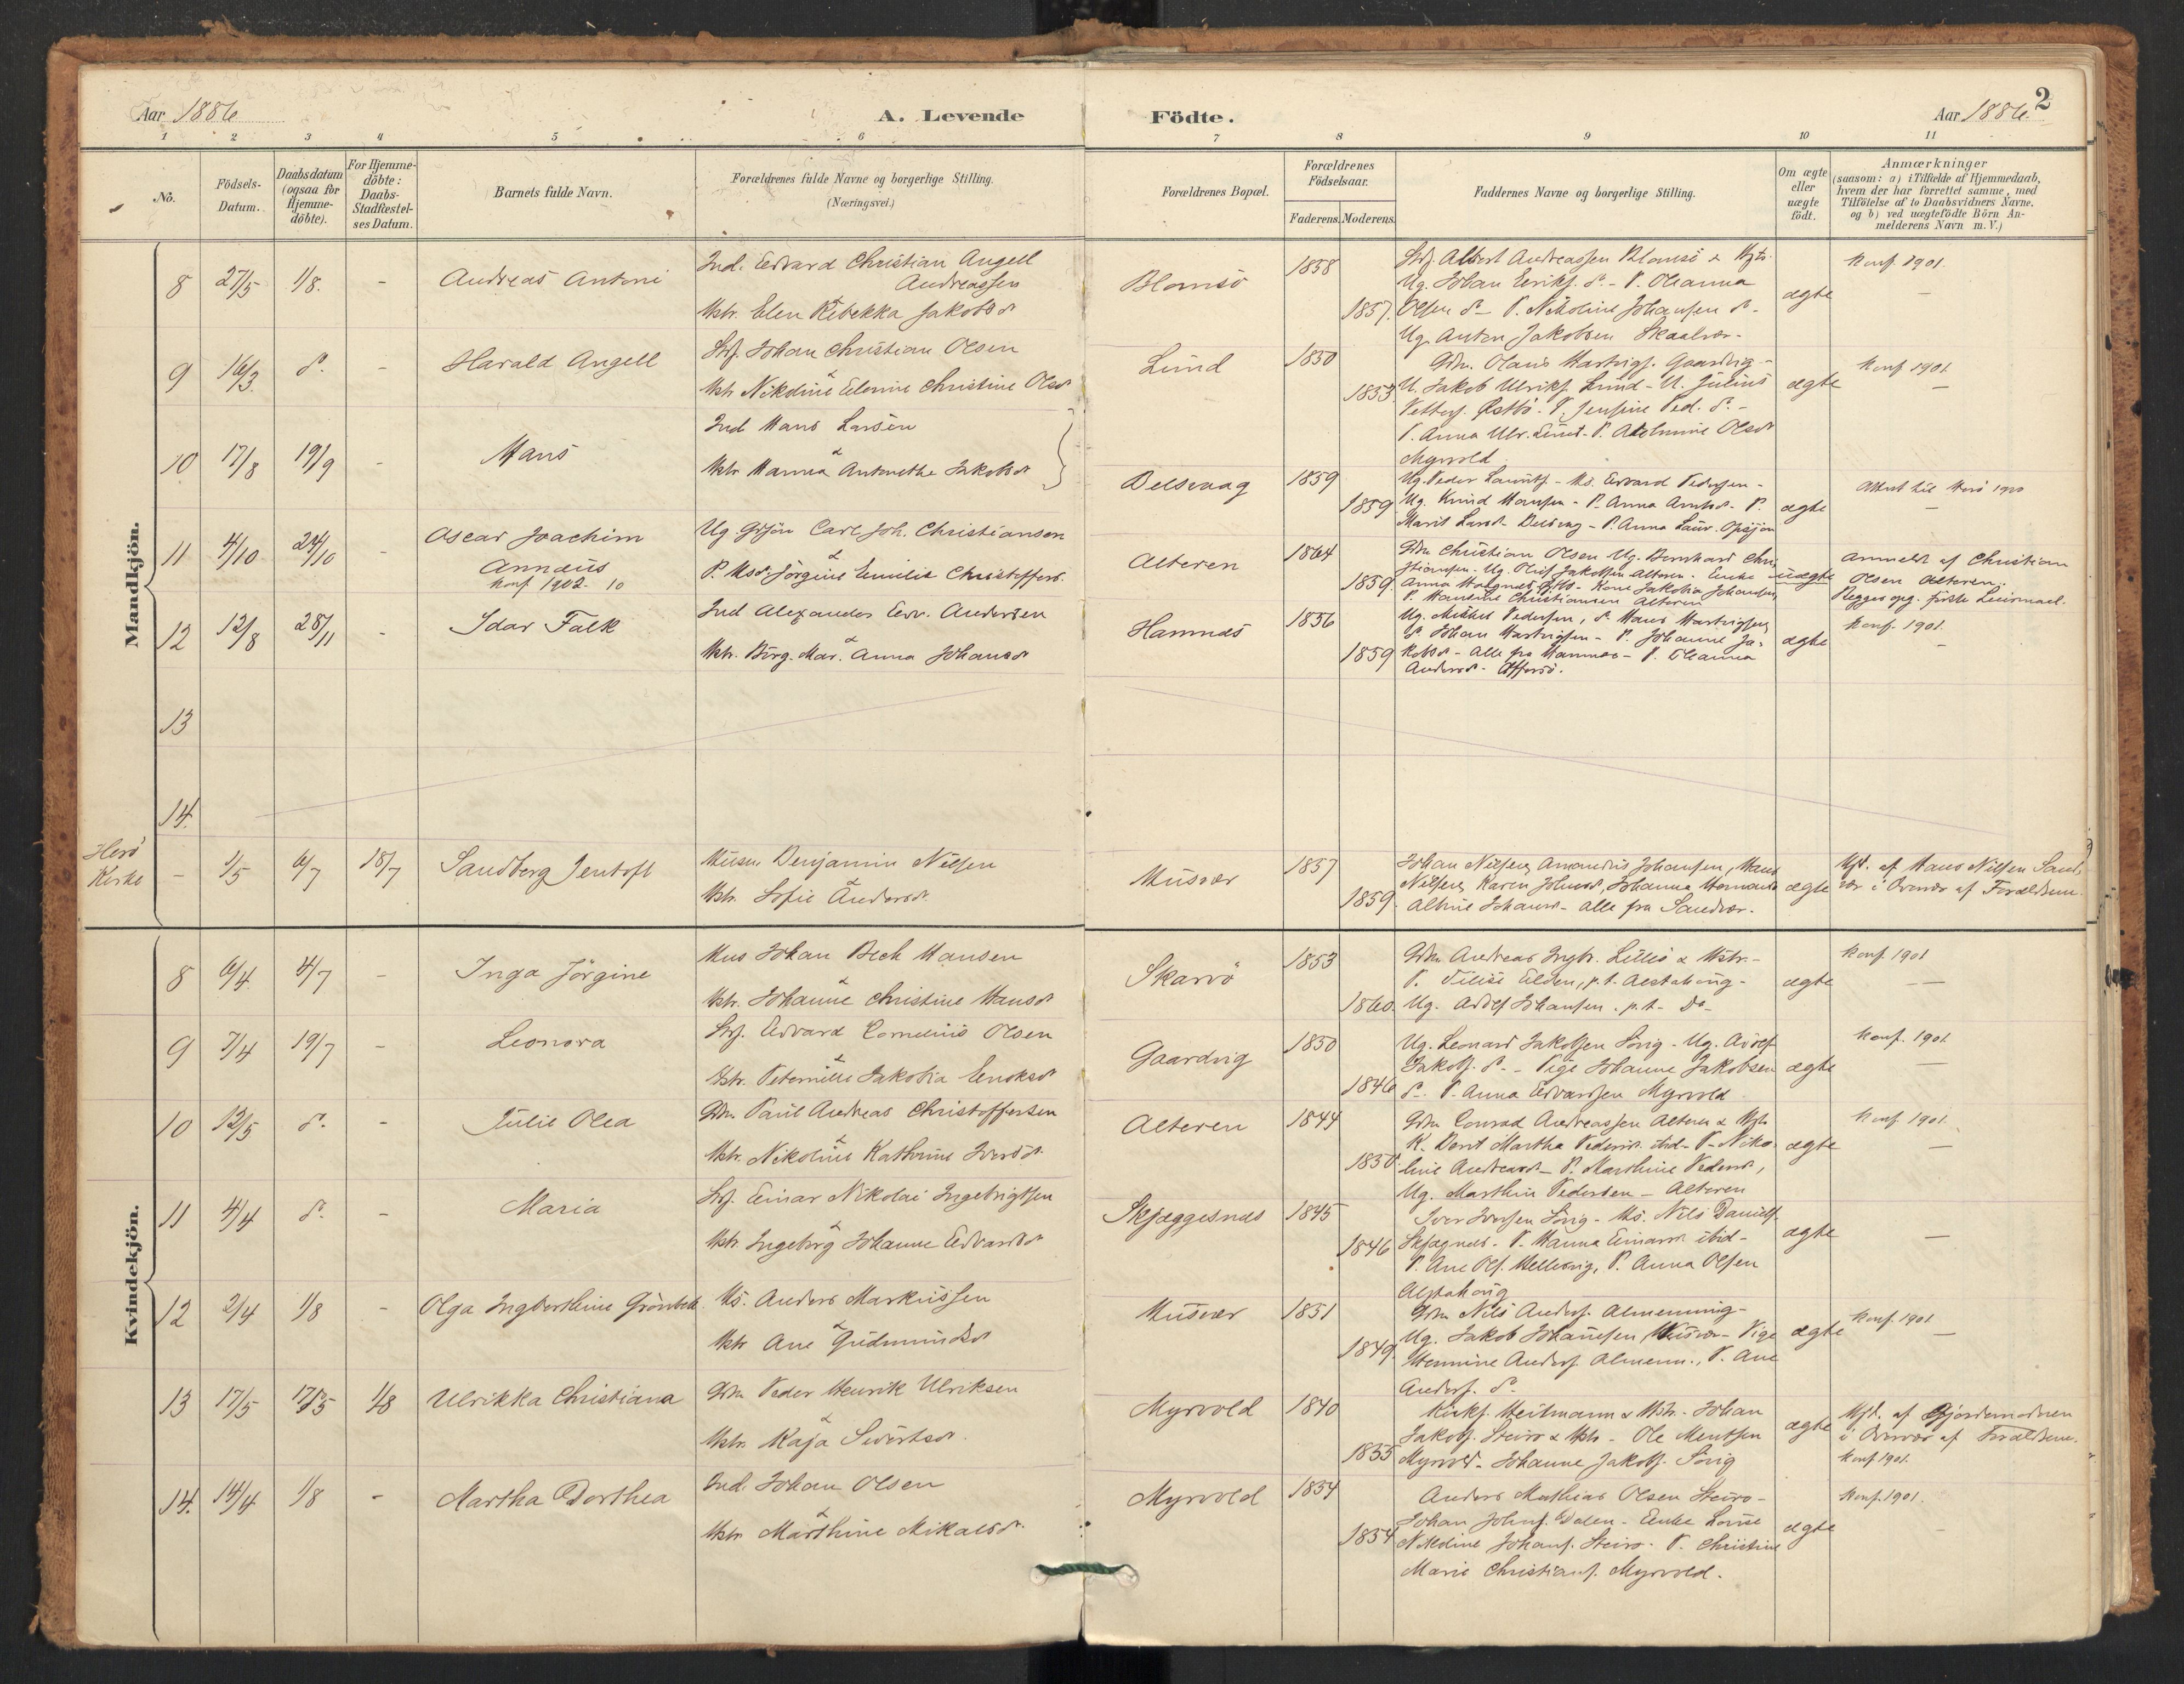 Aar 1886
A. Levende
Födte.
Aar 1886.
2
1 2 3 4 5 6 7 8 9 10 11
No.
Födsels-
Datum.
Daabsdatum
(ogsaa for
Hjemme-
döbte).
For Hjemme-
döbte:
Daabs-
Stadfæstel-
ses Datum.
Barnets fulde Navn.
Forældrenes fulde Navne og borgerlige Stilling.
(Næringsvei.)
Forældrenes Bopæl.
Forældrenes
Födselsaar.
Faderens. Moderens.
Faddernes Navne og borgerlige Stilling.
Om ægte
eller
uægte
födt.
Anmærkninger
(saasom: a) i Tilfælde af Hjemmedaab,
hvem der har forrettet samme, med
Tilföielse af to Daabsvidners Navne,
og b) ved uægtefödte Börn An-
melderens Navn m. V.)
Mandkjön.
8 27/5 1/8. - Andreas Antoni
Ind. Edvard Christian Angell
Andreassen
&
Hstr. Elen Rebekka Jakobsd
Blomsö
1858
1857.
Albert Andreassen Blomsö &
Ug. Johan Eriks. d° - P. Oleanna
Olsen d° - P. Nikoline Johansen d° -
Ug. Anton Jakobsen Skaalvær -
ægte
Konf. 1901.
-
9 16/3 d°. - Harald Angell
Johan Christian Olsen
&
Hstr Nikoline Elenine Christine Olsd
Lund
1850
1853
Gdm. Olaus Hartvigs. Gaardvig -
U. Jakob Ulriks. Lund - U. Julius
Östbö. P. Jensine Ped. d°. -
P. Anna Ulr. Lund - P. Olsd
Myrvold
ægte
Konf 1901
-
10 17/8 19/9 - Hans
Ind Hans Larsen
&
Hstr Hanna Antonethe Jakobsd
Belsvaag
1859
1859
Ug. Peder - Hs. Edvard Pedersen -
Ug. Knud Hansen - P. Anna - P.
Marit Larsd - P. Anna Laur.
ægte
Attest til Herö
-
11 4/10 24/10 - Oscar Joachim
Annæus
Konf 1902. 10
Ug. Carl Joh. Christiansen
&
P. Jörgine Emilie Christoffers.
Alteren
1864
1859.
Gdm Christian Olsen Ug. Bernhard Chri-
stiansen - Ug. Oluf Jakobsen Alteren. Enke
Anna - Kone Jakobia Johansen
P. Hansine Christiansen Alteren
uægte
Anmeldt af Christian
Olsen Alteren.
12 12/8 28/11 - Idar Falk
Ind Alexander Edv. Andersen
&
Hstr. Birg. Mar. Anna Johansd
Hamnes
1856
1859
Ug. Mikkel Pedersen, d° Hans Hartvigsen
d° Johan Hartvigsen - P. Johanne Ja-
kobsd - Alle fra Hamnes - P. Oleanna
Andersd -
ægte
Konf. 1901.
-
13
14.
Herö
Kirke
- 1/5 6/7 18/7 Sandberg Jentoft
Husm. Benjamin Nilsen
&
Hstr. Sofie Andersd.
Husvær
1857
1859.
Johan Nilsen, Amandus Johansen, Hans
Nilsen, Karen Johnsd, Johanna
Albine Johansd - alle fra Sandvær.
ægte
Hjd. af Hans Nilsen Sand-
vær i Overvær af Forældrene.
Kvindekjön.
8 6/4 4/7 - Inga Jörgine
Hus Johan Bech Hansen
&
Hstr. Johanne Christine Hansd
Skarvö
1853
1860.
Gdm Andreas Ingbr. Lillö & Hstr. -
P. Elden, p.t. Alstahoug -
Ug. Adolf Johansen. p.t. Do -
ægte
Konf 1901
-
9 7/4 19/7 - Leonora
Edvard Cornelius Olsen
&
Hstr. Peternille Jakobia Enoksd
Gaardvig
1850
1846
Ug. Leonard Jakobsen - Ug. Adolf
Jakobs. d°. - Pige Johanne Jakobsen
d°. P. Anna Edvardsen Myrvold
ægte
Konf. 1901.
-
10 12/5 d°. - Julie Olea
Gdm Paul Andreas Christoffersen
&
Hstr. Nikoline Kathrine Iversd
Alteren
1844
1850
Gdm Conrad Andreassen Alteren & Hstr
K. Berit Martha Pedersd. ibid - P. Niko-
line Andreasd - P. Marthine Pedersd,
Ug. Marthin Pedersen - Alteren
ægte
Konf 1901.
-
11 4/4 d°. - Maria
Einar Nikolai Ingebrigtsen
&
Hstr Ingeborg Johanne Edvardsd
Skjæggesnes
1845
1846
Iver Iversen - Hs. Nils Daniels.
Skjægnes - P. Hanna Einarsd ibid -
P. Ane Ols. Mellevig, P. Anna Olsen
Alstahoug
ægte
-
12 2/4 1/8 - Olga Ingberthine Grönbek
Hs. Anders Markussen
&
Hstr Ane Gudmundsd
Husvær
1851
1849.
Gdm Nils Anders. Almenning -
Ug. Jakob Johannesen Husvær - Pige
Hermine Anders. Almenn., P. Ane
Anders. d°.
ægte
Konf. 1901.
-
13 17/5 17/5 1/8 Ulrikka Christiana
Gdm Peder Henrik Ulriksen
Hstr. Kaja Sivertsd.
Myrvold
1840
1855
Heitmann & Hstr. - Johan
Jakobs. Steiro & Hstr - Ole Mentsen
Myrvold - Johanne Jakobs.
ægte
Hjd. af Gjordemoderen
i Overvær af Forældrene.
Konf 1901.
14. 14/4 1/8 - Martha Dorthea
Ind. Johan Olsen
&
Hstr Marthine Mikalsd.
Myrvold
1854
1854
Anders Mathias Olsen Steiro -
Johan Johns. Dalen - Enke Lovise
Nikoline Johans. Steiro - P. Christine
Marie Christians. Myrvold.
ægte
Konf. 1901.
-